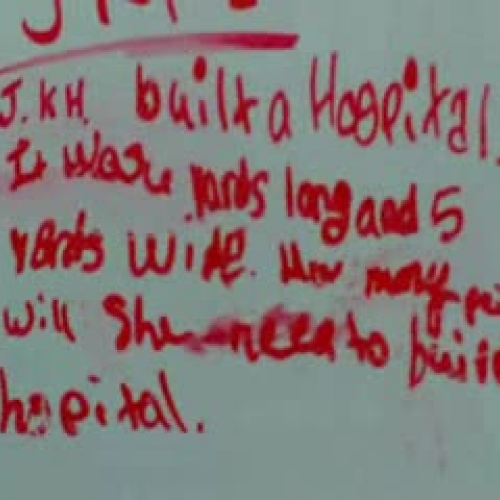 J.K.H. built a Hospital.
It was yards long and 5
yards wide. How many
will she need to build
hospital.